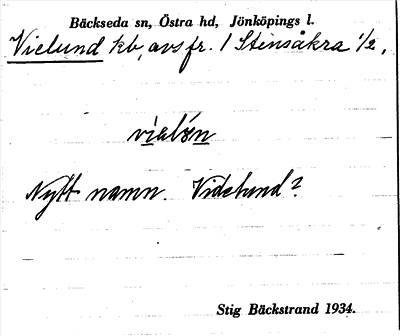 Bäckseda sn, Östra hd, Jönköpings l.
Vielund kb, avs fr. 1 Stensåkra 1/2,
Nytt namn. Videlund?
Stig Bäckstrand 1934.